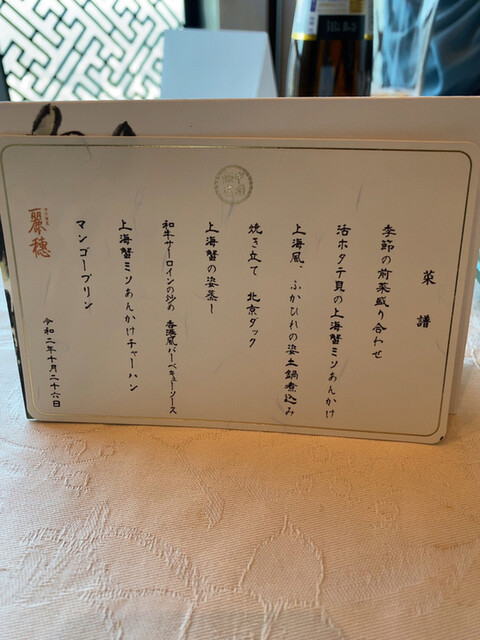 菜譜
季節の前菜盛り合わせ
活ホタテ貝の上海蟹ミソあんかけ
上海風、ふかひれの姿土鍋煮込み
焼き立て 北京ダック
上海蟹の姿蒸し
和牛サーロインの炒め 香港風バーベキューソース
上海蟹ミソあんかけチャーハン
マンゴープリン
令和二年十月二十六日
麗穂